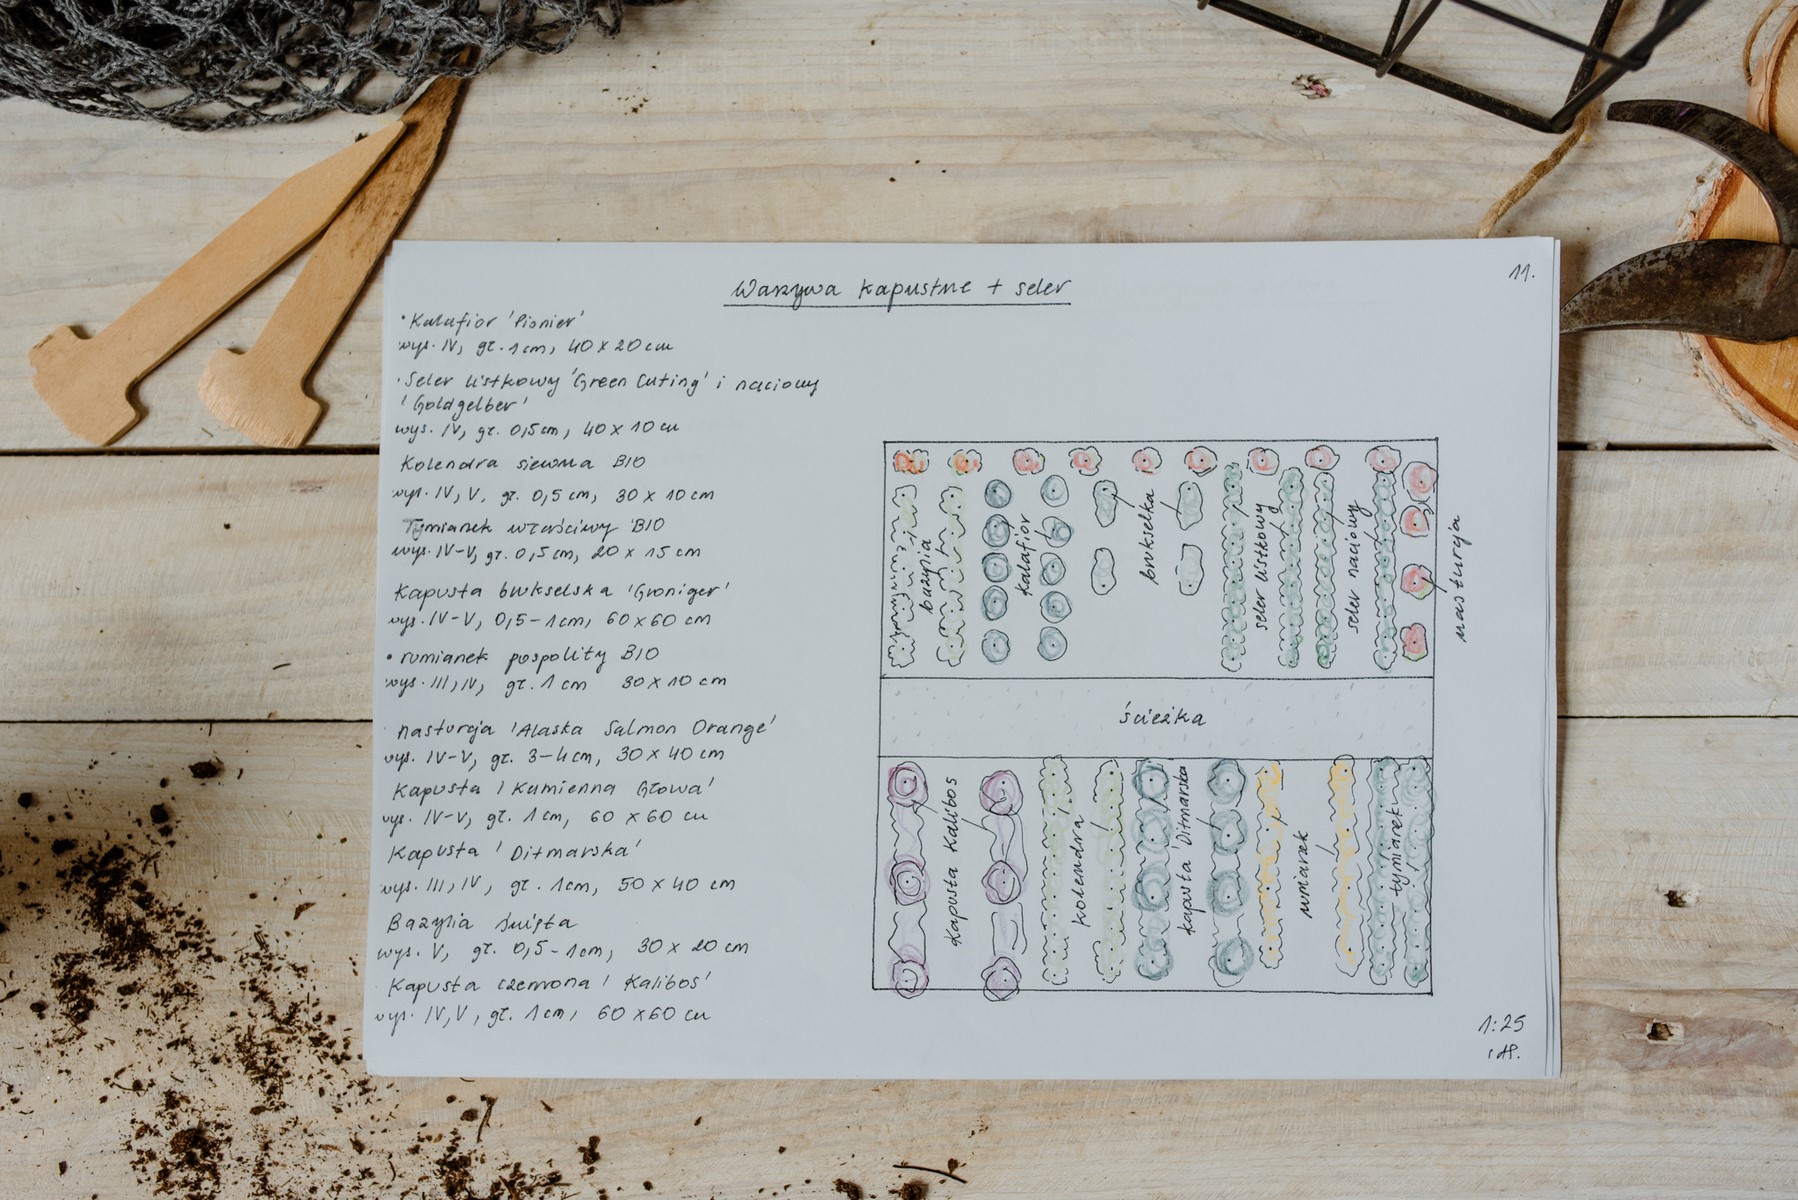 Warzywa kapustne + seler
11.
• Kalafior 'Pionier'
wys. IV, gł. 1cm, 40 x 20 cm
• Seler listkowy 'Green Cuting' i naciowy
'Goldgelber'
wys. IV, gł. 0,5cm, 40 x 10 cm
Kolendra siewna BIO
wys. IV, V, gł. 0,5 cm, 30 x 10 cm
Tymianek właściwy BIO
wys. IV-V, gł. 0,5 cm, 20 x 15 cm
Kapusta brukselska 'Groniger'
wys. IV-V, 0,5-1cm, 60 x 60 cm
• rumianek pospolity BIO
wys. III, IV, gł. 1 cm 30 x 10 cm
nasturcja 'Alaska Salmon Orange'
wys. IV-V, gł. 3-4cm, 30 x 40 cm
Kapusta 'Kamienna Głowa'
wys. IV-V, gł. 1cm, 60 x 60 cm
Kapusta 'Ditmarska'
wys. III, IV, gł. 1cm, 50 x 40 cm
Bazylia święta
wys. V, gł. 0,5-1cm, 30 x 20 cm
Kapusta czerwona 'Kalibos'
wys. IV, V, gł. 1cm, 60 x 60 cm
bazylia
kalafior
brukselka
seler listkowy
seler naciowy
nasturcja
ścieżka
kapusta Kalibos
kolendra
kapusta Ditmarska
rumianek
tymianek
1:25